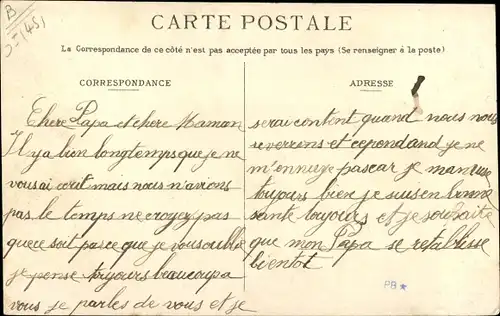 B
CARTE POSTALE
La Correspondance de ce côté n'est pas acceptée par tous les pays (Se renseigner à la poste).
CORRESPONDANCE
Chere Papa et chere Maman
Il y a bien longtemps que je ne
vous ai ecrit mais nous n'avions
pas le temps ne croyez pas
que ce soit parce que je vous oublie
je pense toujours beaucoup a
vous je parles de vous et je
ADRESSE
serai content quand nous nous
reverrons et cependand je ne
m'ennuye pas car je m'amuse
toujours bien je suis en bonne
santé toujours et je souhaite
que mon Papa se retablisse
bientot
PB*